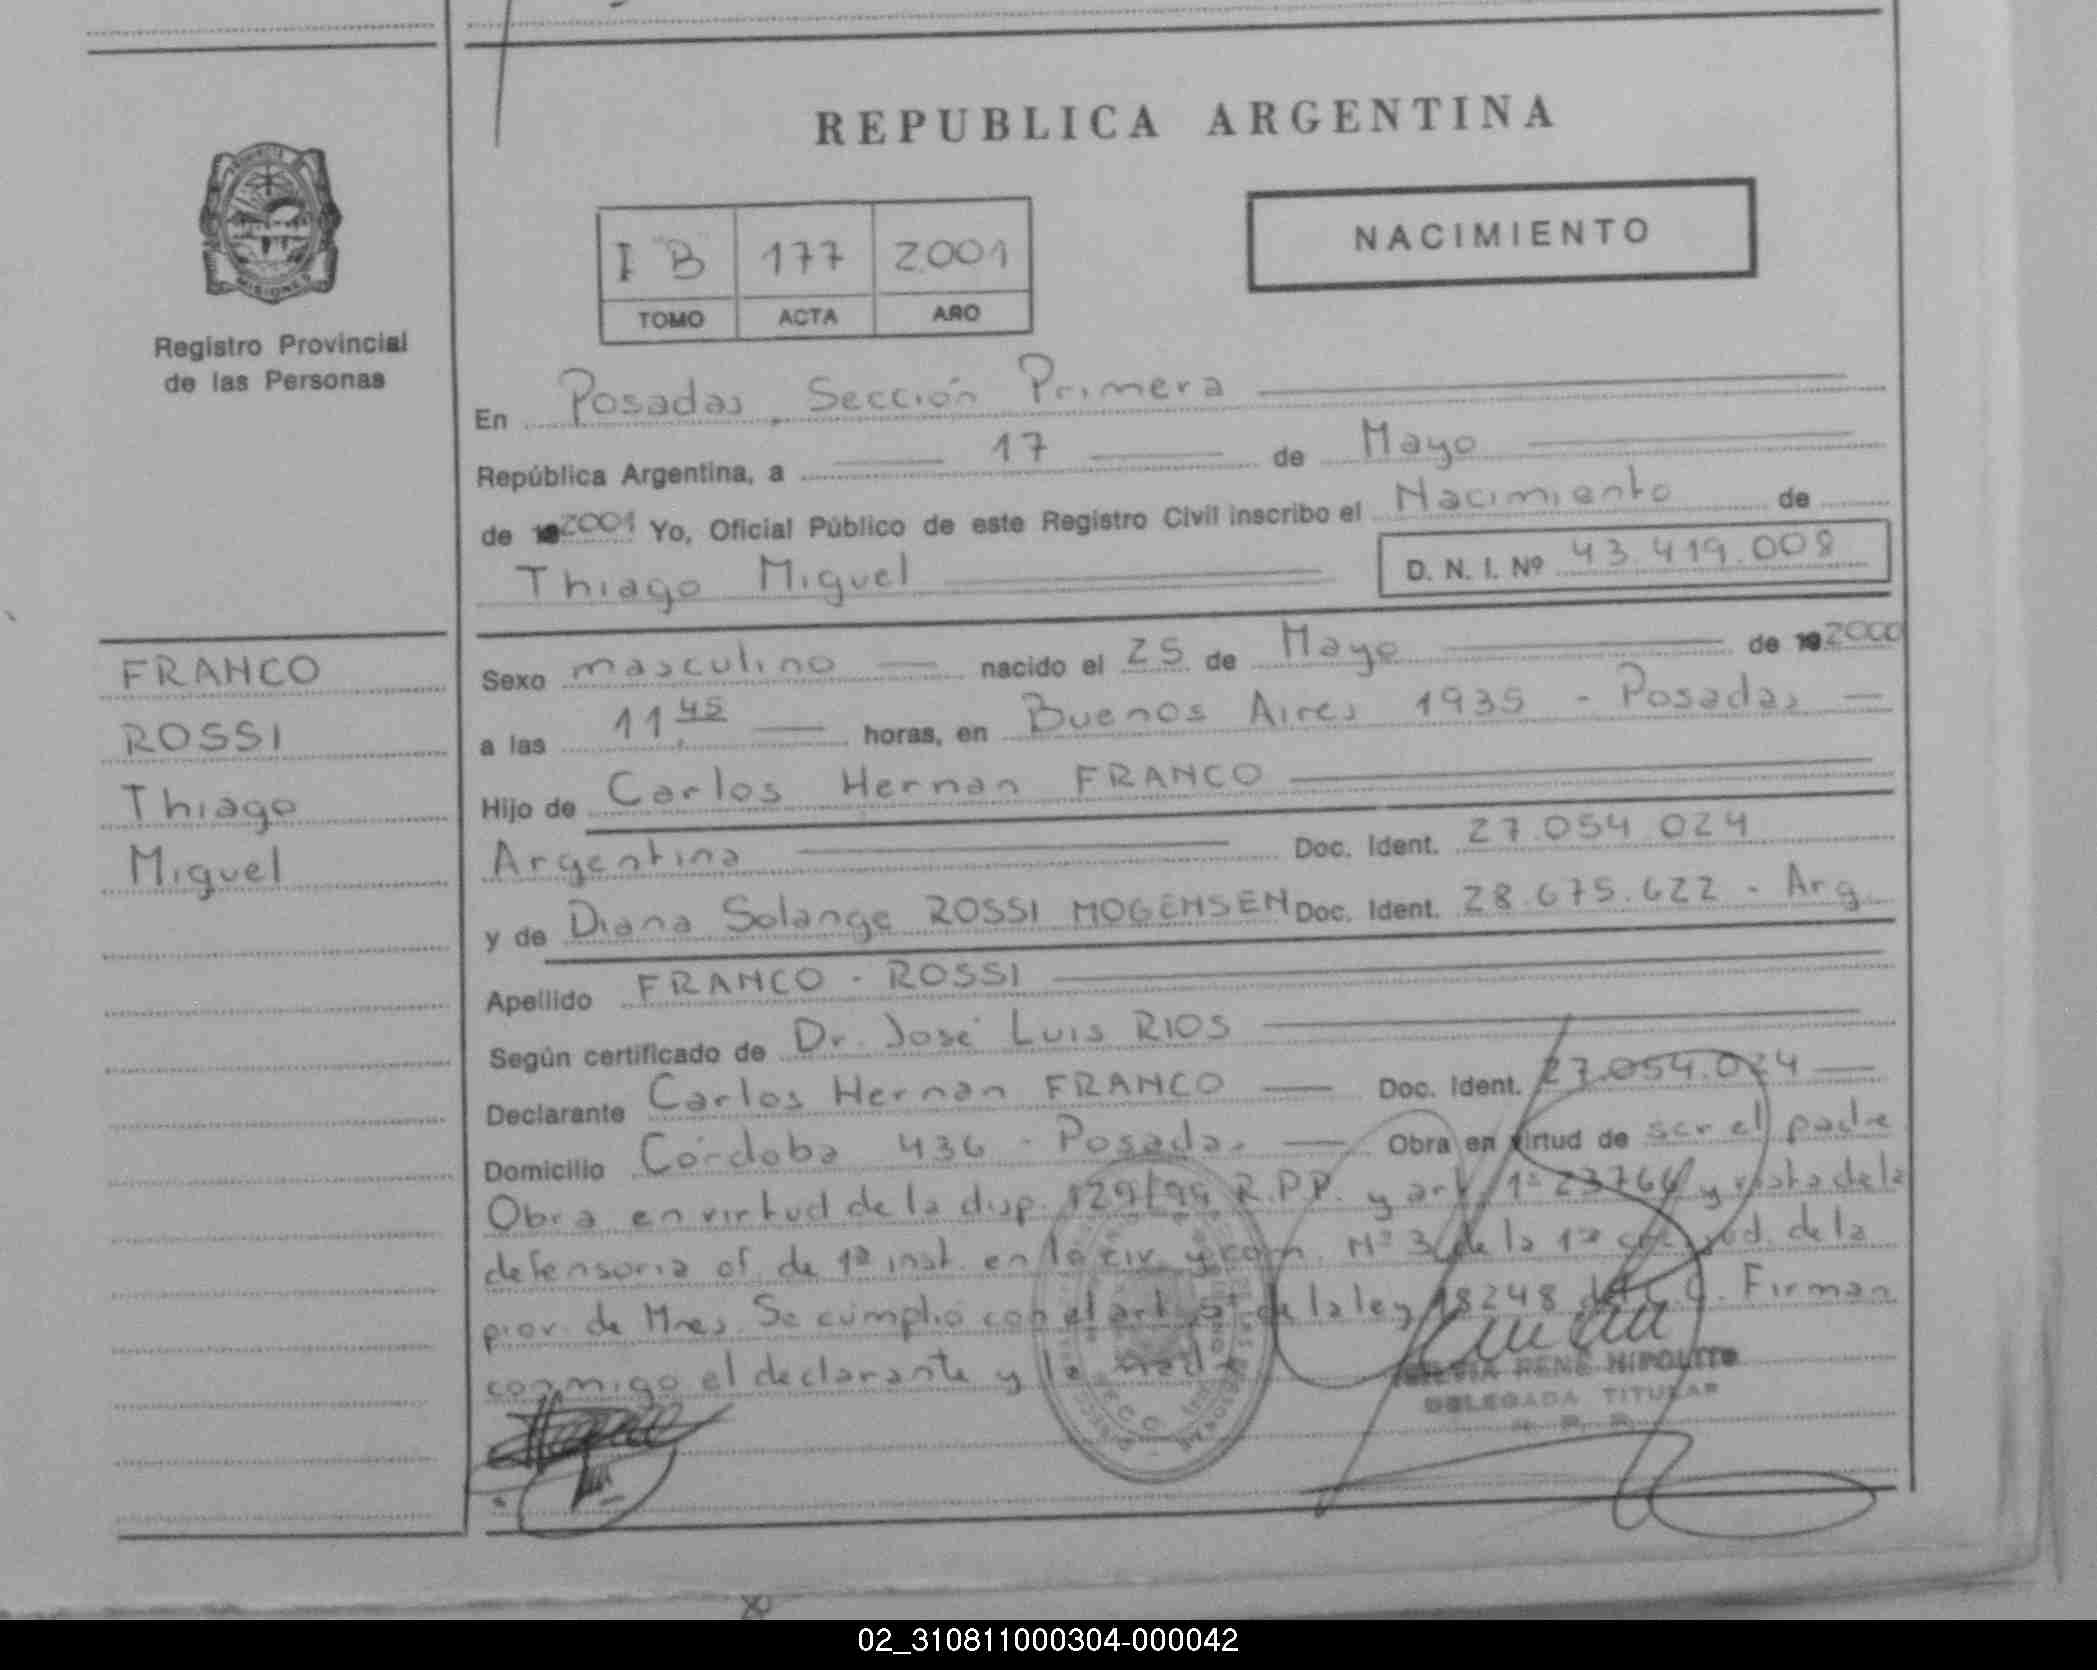 REPUBLICA ARGENTINA
PROVINCIA
MISIONES
Registro Provincial
de las Personas
I "B" 177 2001
TOMO ACTA AÑO
NACIMIENTO
En Posadas, Sección Primera
República Argentina, a 17 de Mayo
de 2001 Yo, Oficial Público de este Registro Civil inscribo el Nacimiento de
Thiago Miguel D. N. I. Nº 43.419.008
FRANCO
ROSSI
Thiago
Miguel
Sexo masculino nacido el 25 de Mayo de 2000
a las 11 45 horas, en Buenos Aires 1935 - Posadas
Hijo de Carlos Hernan FRANCO
Argentina Doc. Ident. 27.054.024
y de Diana Solange ROSSI MOGENSEN Doc. Ident. 28.675.622 - Arg.
Apellido FRANCO - ROSSI
Según certificado de Dr. José Luis RIOS
Declarante Carlos Hernan FRANCO Doc. Ident. 27.054.024
Domicilio Córdoba 436 - Posadas Obra en virtud de ser el padre
Obra en virtud de la disp. 129/99 R.P.P. y art. 1º 23764 y vista de la
defensoria of. de 1ª inst. en lo civ. y com. Nº 3 de la 1ra jud. de la
prov. de Mnes. Se cumplió con el art. de la ley 18248 Firman
conmigo el declarante y la madre
RENE HIPOLITO
DELEGADA TITULAR
02_310811000304-000042